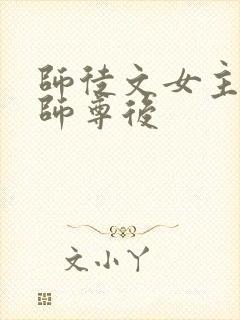 師徒文女主
師尊後
文小丫